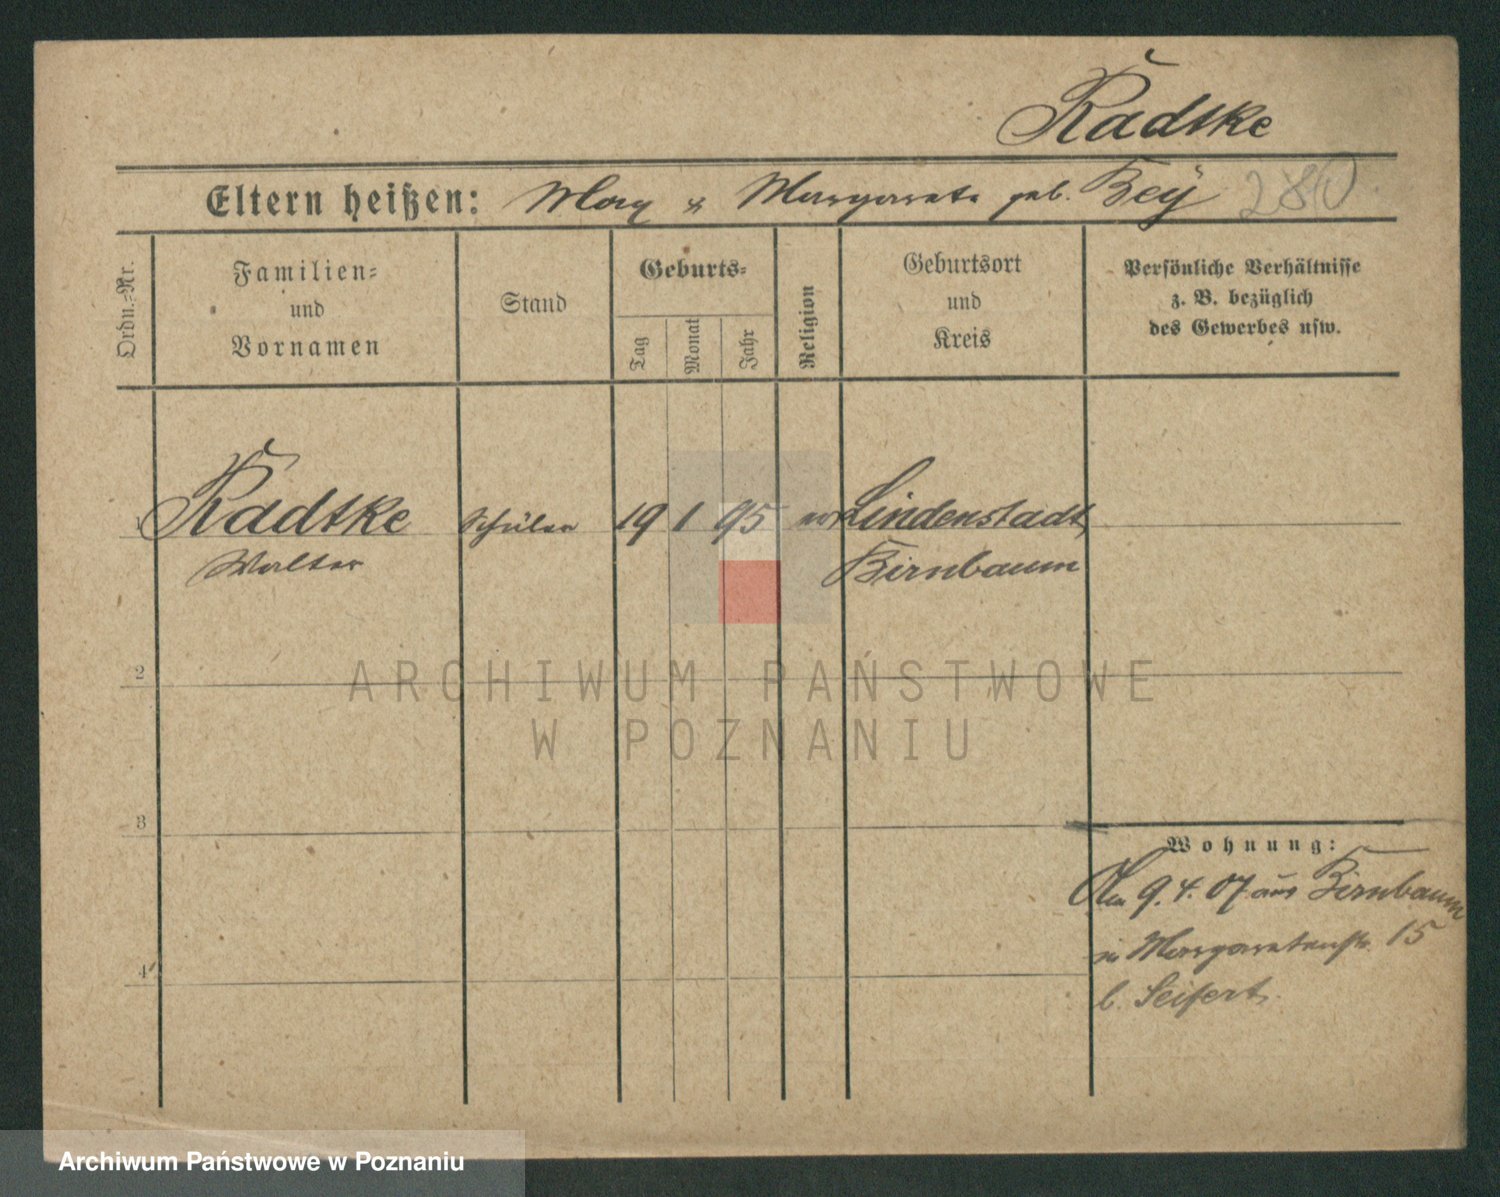 Radtke
Eltern heißen: Max & Margarete geb. Bey 280
Ordn.-Nr.
Familien-
und
Vornamen
Stand
Geburts-
Tag
Monat
Jahr
Religion
Geburtsort
und
Kreis
Persönliche Verhältnisse
z. B. bezüglich
des Gewerbes usw.
1 Radtke Schüler 19 1 95 ev Lindenstadt
Walter Birnbaum
2
3
4
Wohnung:
Am 9.4.07 aus Birnbaum
in Margaretenstr. 15
b. Seifert.
ARCHIWUM PAŃSTWOWE
W POZNANIU
Archiwum Państwowe w Poznaniu